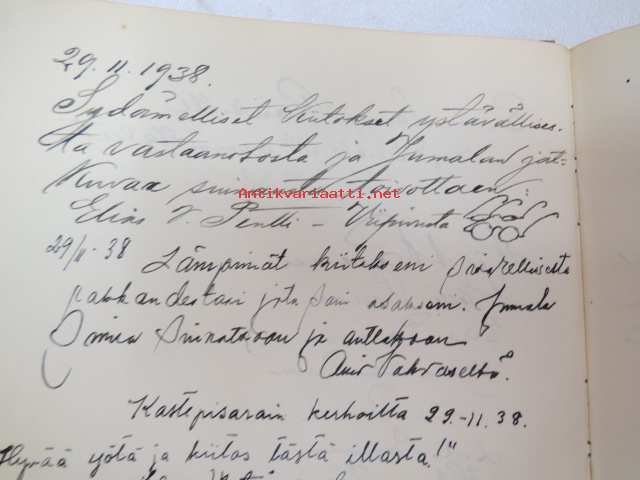 29.11.1938.
Sydämelliset kiitokset ystävällises-
tä vastaanotosta ja Jumalan jat-
kuvaa siunausta toivottaen:
Antikvariaatti.net
Elias V. Pentti - Viipurista
29/11-38 Lämpimät kiitokseni
rakkaudestasi jota sain osakseni. Jumala
Sinua Siunatkoon ja auttakoon
Kastepisarain kerhoilta 29.-11.38.
Hyvää yötä ja kiitos tästä illasta!"